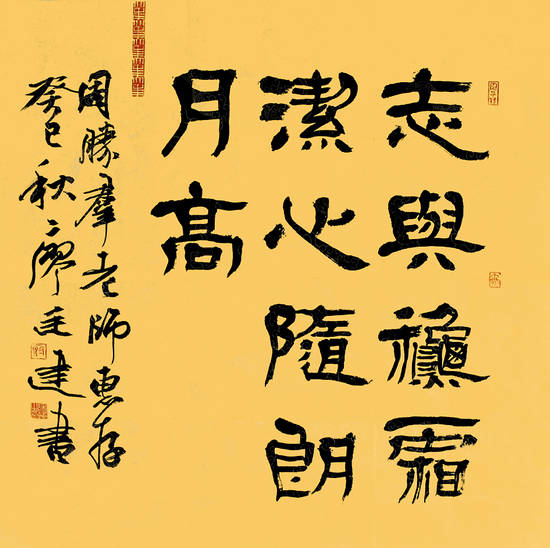 志與龝霜
潔心隨朗
月高
周勝羣老師惠存
癸巳秋廖廷建書